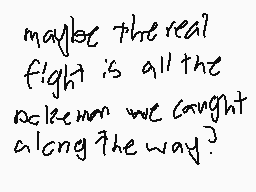 maybe the real
fight is all the
pokemon we caught
along the way?